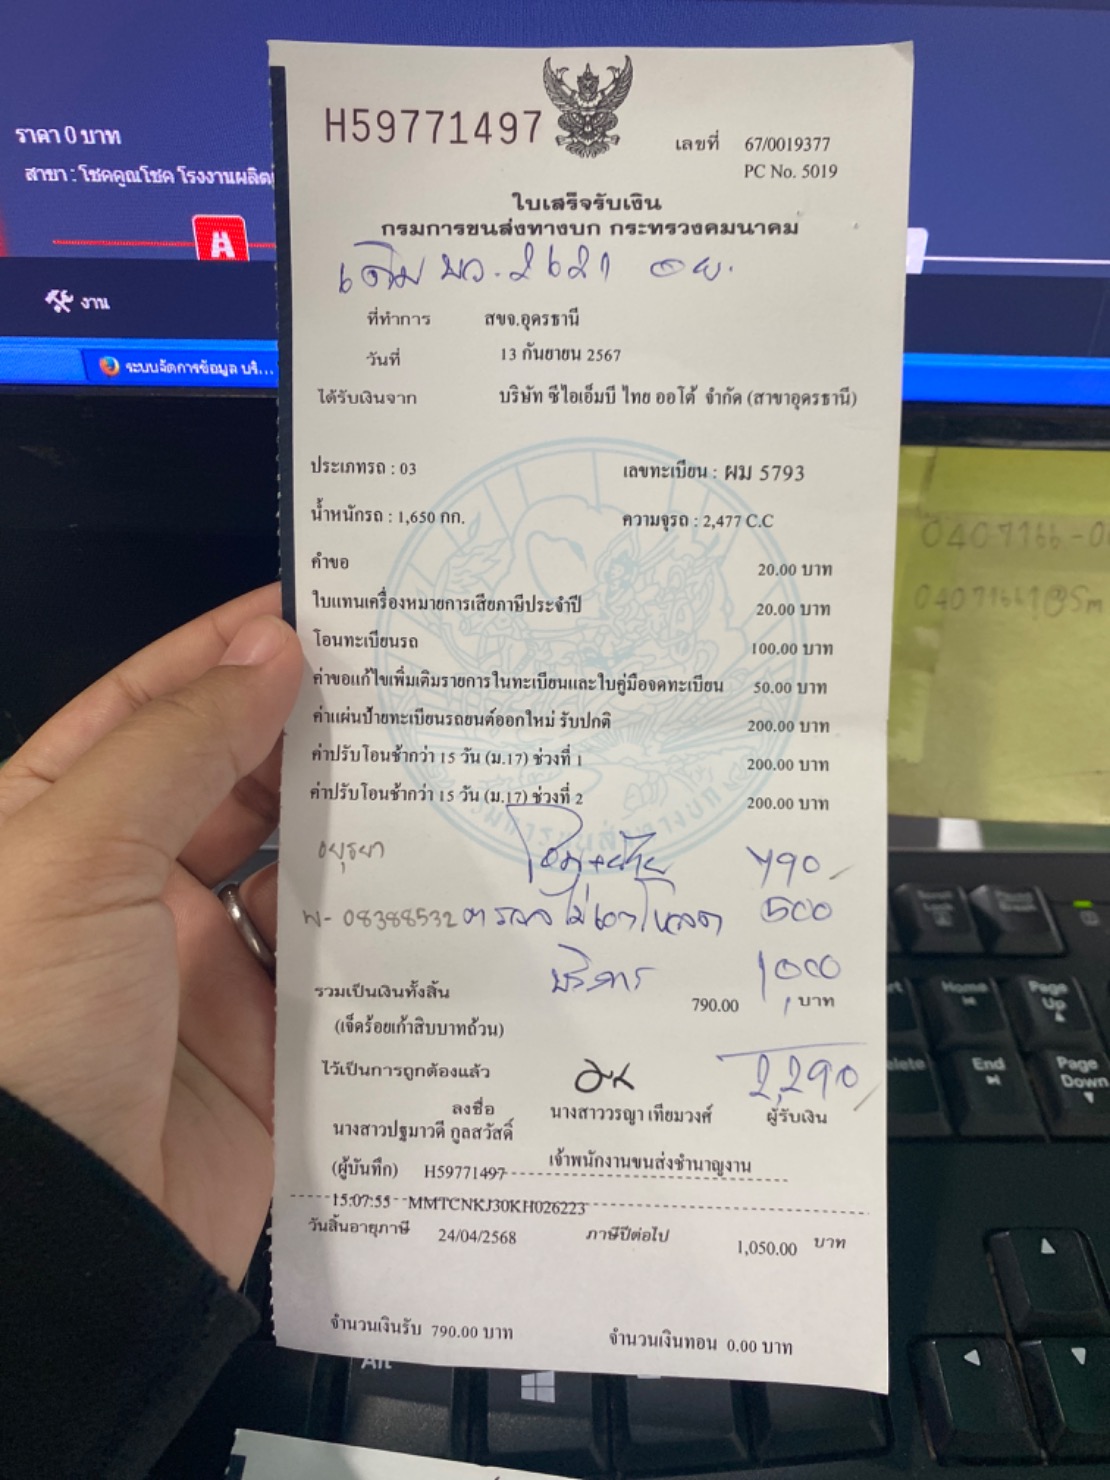 ราคา 0 บาท
สาขา : โชคคูณโชค โรงงานผลิต
งาน
ระบบจัดการข้อมูล บริ...
H59771497
เลขที่ 67/0019377
PC No. 5019
ใบเสร็จรับเงิน
กรมการขนส่งทางบก กระทรวงคมนาคม
เดิม บว. 2621 อย.
ที่ทำการ สขจ.อุดรธานี
วันที่ 13 กันยายน 2567
ได้รับเงินจาก บริษัท ซีไอเอ็มบี ไทย ออโต้ จำกัด (สาขาอุดรธานี)
ประเภทรถ : 03 เลขทะเบียน : ผม 5793
น้ำหนักรถ : 1,650 กก. ความจุรถ : 2,477 C.C
คำขอ 20.00 บาท
ใบแทนเครื่องหมายการเสียภาษีประจำปี 20.00 บาท
โอนทะเบียนรถ 100.00 บาท
ค่าขอแก้ไขเพิ่มเติมรายการในทะเบียนและใบคู่มือจดทะเบียน 50.00 บาท
ค่าแผ่นป้ายทะเบียนรถยนต์ออกใหม่ รับปกติ 200.00 บาท
ค่าปรับโอนช้ากว่า 15 วัน (ม.17) ช่วงที่ 1 200.00 บาท
ค่าปรับโอนช้ากว่า 15 วัน (ม.17) ช่วงที่ 2 200.00 บาท
อยุธยา โอน+ย้าย 790
08388532 ตรวจไม่เอาโหลด 500
บริการ 1000
รวมเป็นเงินทั้งสิ้น 790.00 บาท
(เจ็ดร้อยเก้าสิบบาทถ้วน)
ไว้เป็นการถูกต้องแล้ว 2,290
ลงชื่อ นางสาววรญา เทียมวงศ์ ผู้รับเงิน
นางสาวปฐมาวดี กูลสวัสดิ์ เจ้าพนักงานขนส่งชำนาญงาน
(ผู้บันทึก) H59771497
15:07:55 MMTCNKJ30KH026223
วันสิ้นอายุภาษี 24/04/2568 ภาษีปีต่อไป 1,050.00 บาท
จำนวนเงินรับ 790.00 บาท จำนวนเงินทอน 0.00 บาท
0407166-0
Home
Page Up
End
Page Down
Alt